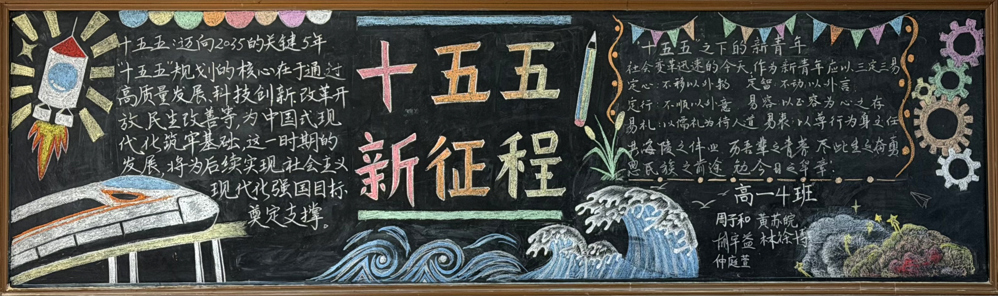 十五五:迈向2035的关键5年
"十五五"规划的核心在于通过
高质量发展、科技创新、改革开
放、民生改善等,为中国式现
代化筑牢基础,这一时期的
发展,将为后续实现社会主义
现代化强国目标
奠定支撑。
十五五
新征程
"十五五"之下的新青年
社会变革迅速的今天,作为新青年应以三定三易
定心:不移以外物 定留:不动以外言
定行:不顺以外意 易容:以正容为心之存
易礼:以儒礼为待人道 易表:以尊行为身之任
思民族之前途 勉今日之学業
高一4班
周于和 黄苏皖
林焓博
仲庭萱